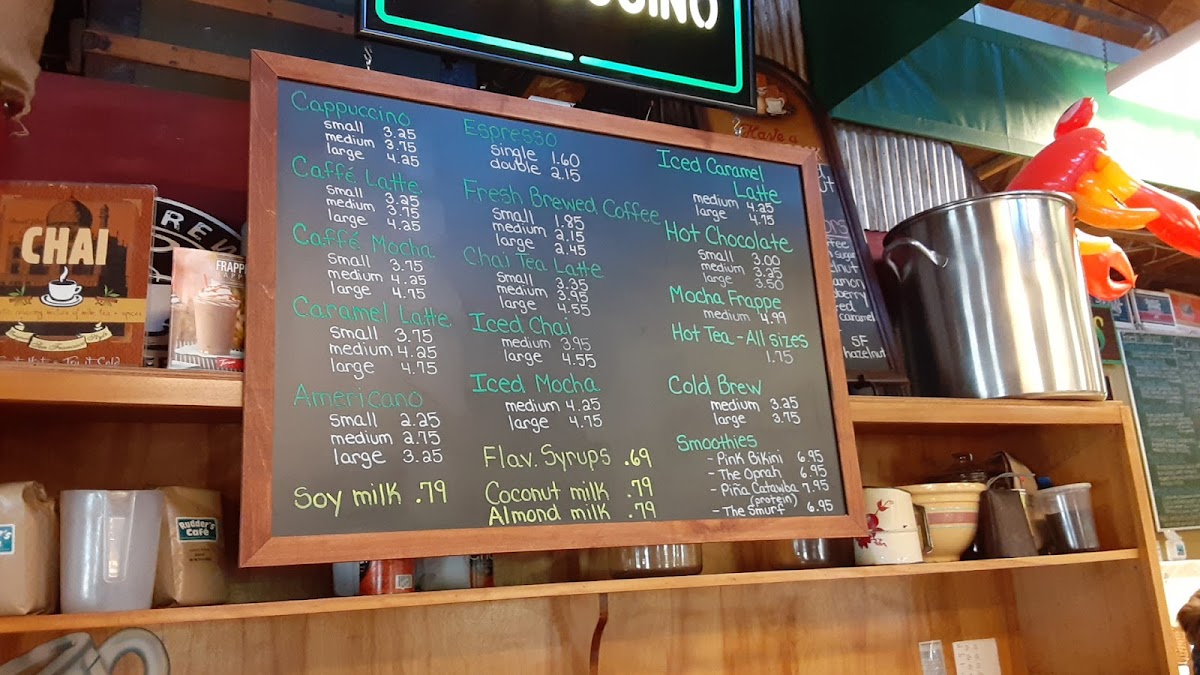 CINO
Cappuccino
small 3.25
medium 3.75
large 4.25
Caffé Latte
small 3.25
medium 3.75
large 4.25
Caffé Mocha
small 3.75
medium 4.25
large 4.75
Caramel Latte
small 3.75
medium 4.25
large 4.75
Americano
small 2.25
medium 2.75
large 3.25
Soy milk .79
Espresso
single 1.60
double 2.15
Fresh Brewed Coffee
small 1.85
medium 2.15
large 2.45
Chai Tea Latte
small 3.35
medium 3.95
large 4.55
Iced Chai
medium 3.95
large 4.55
Iced Mocha
medium 4.25
large 4.75
Flav. Syrups .69
Coconut milk .79
Almond milk .79
Iced Caramel
Latte
medium 4.25
large 4.75
Hot Chocolate
small 3.00
medium 3.25
large 3.50
Mocha Frappe
medium 4.99
Hot Tea - All sizes
1.75
Cold Brew
medium 3.25
large 3.75
Smoothies
- Pink Bikini 6.95
- The Oprah 6.95
- Piña Catawba 7.95
(protein)
- The Smurf 6.95
CHAI
FRAPP
Have a
SF
hazelnut
caramel
Rudder's
Café